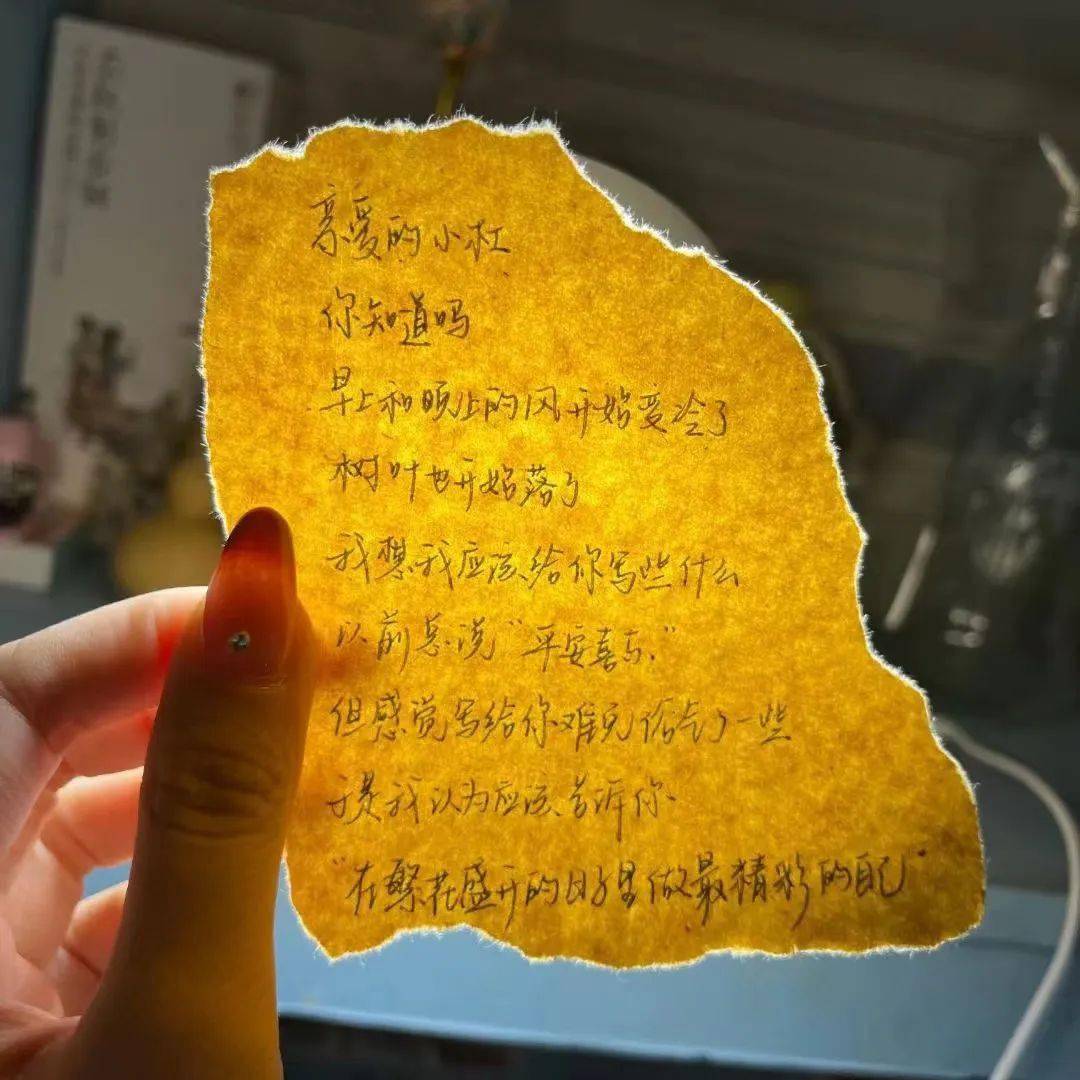 亲爱的小杜
你知道吗
早上和晚上的风开始变冷了
树叶也开始落了
我想我应该给你写些什么
以前总说“平安喜乐”
但感觉写给你难免俗气了一些
于是我认为应该告诉你
“在繁花盛开的日子里做最精彩的自己”